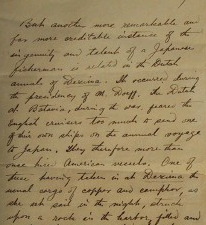 But another more remarkable and
far more creditable instance of the
ingenuity and talent of a Japanese
fisherman is related in the Dutch
annals of Dezima. It occurred during
the presidency of M. Doeff, the Dutch
at Batavia, during the war, feared the
English cruisers too much to send one
of their own ships on the annual voyage
to Japan. They therefore more than
once hire American vessels. One of
these having taken in at Dezima the
usual cargo of copper and camphor, as
she set sail in the night, struck
upon a rock in the harbor, filled and